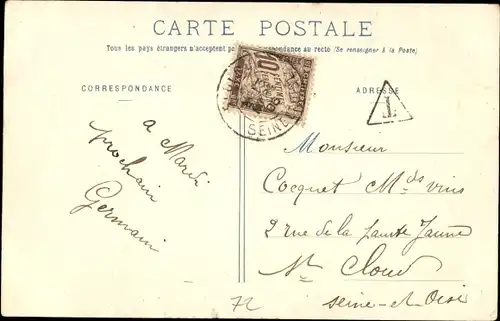 CARTE POSTALE
Tous les pays étrangers n'acceptent pas la correspondance au recto (Se renseigner à la Poste)
CORRESPONDANCE
ADRESSE
T
10
CENTIMES
SEINE
à Mardi
prochain
Germain
Monsieur
Cocquet Mds vins
2 rue de la Jaune
St Cloud
Seine-et-Oise
72